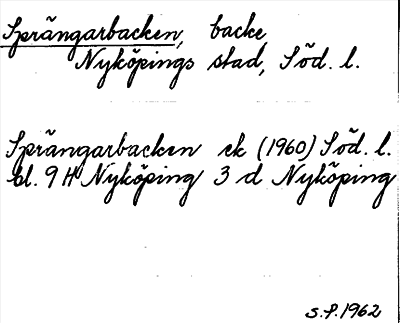 Sprängarbacken, backe
Nyköpings stad, Söd. l.
Sprängarbacken ek (1960) Söd. l.
bl. 9 H Nyköping 3 d Nyköping
S.P. 1962